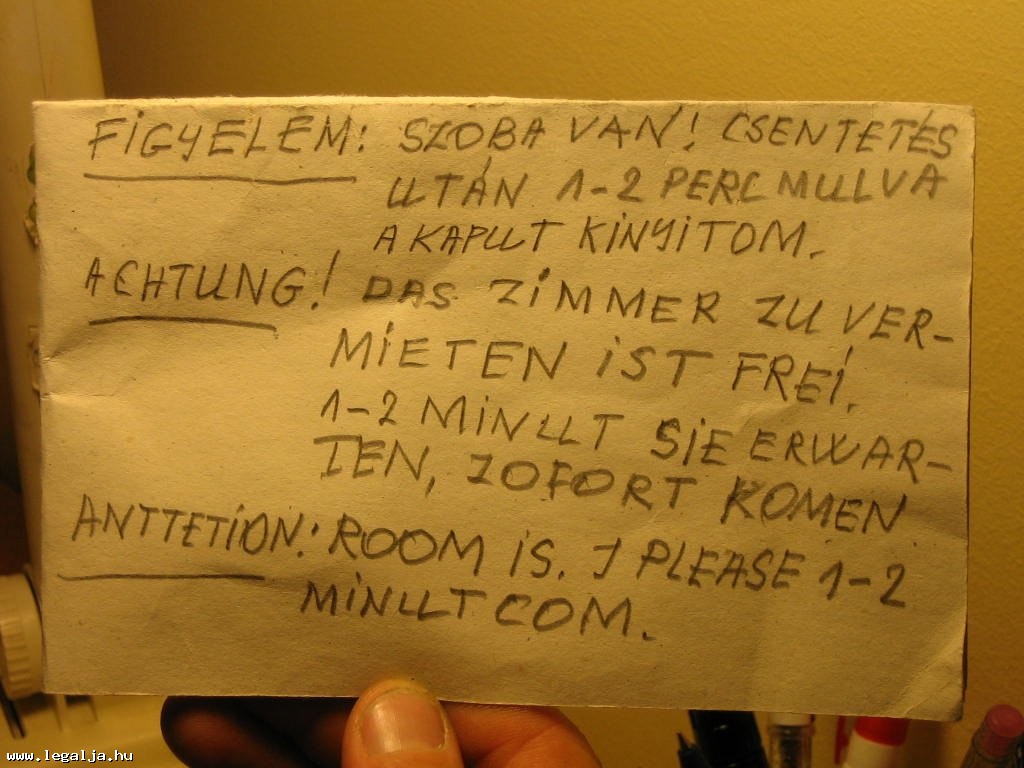 FIGYELEM: SZOBA VAN! CSENTETÉS
UTÁN 1-2 PERC MULVA
A KAPUT KINYITOM.
ACHTUNG! DAS ZIMMER ZU VER-
MIETEN IST FREI.
1-2 MINUT SIE ERWAR-
TEN, ZOFORT KOMEN
ANTTETION: ROOM IS. I PLEASE 1-2
MINUT COM.
www.legalja.hu